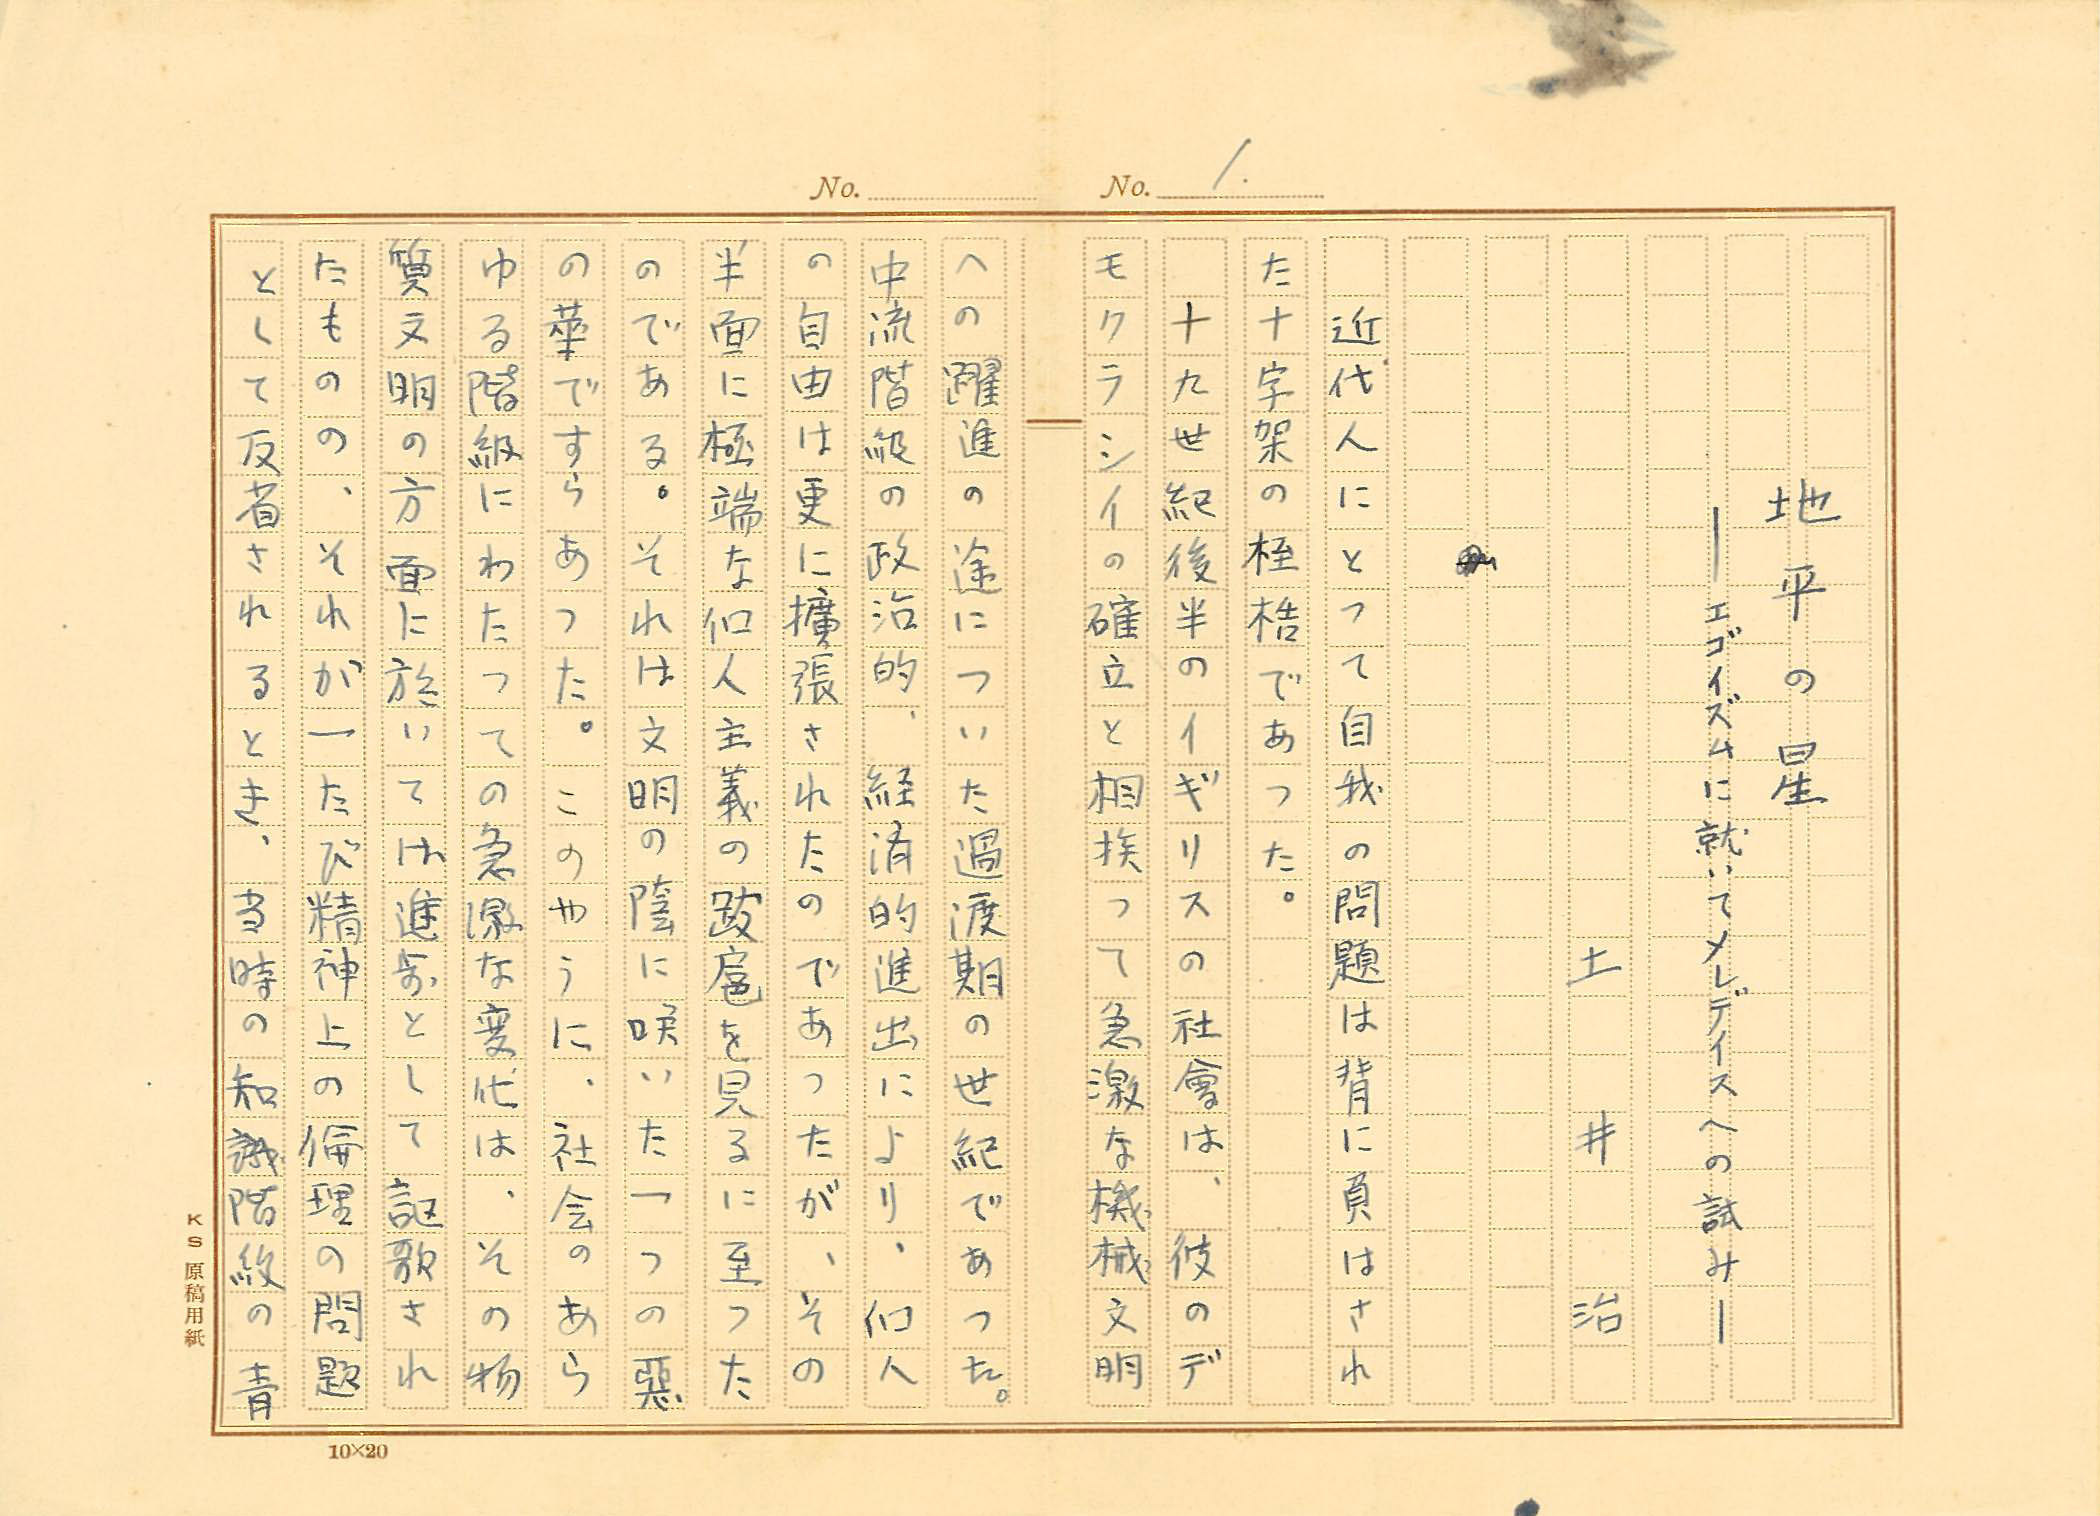 No. 1.
No.
地平の星
―エゴイズムに就いてメレディスへの試み―
土井治
近代人にとって自我の問題は背に負はされ
た十字架の桎梏であった。
十九世紀後半のイギリスの社會は、彼のデ
モクラシイの確立と相挨って急激な機械文明
への躍進の途についた過渡期の世紀であった。
中流階級の政治的、経済的進出により、個人
の自由は更に擴張されたのであったが、その
半面に極端な個人主義の跋扈を見るに至った
のである。それは文明の陰に咲いた一つの惡
の華ですらあった。このやうに、社会のあら
ゆる階級にわたっての急激な変化は、その物
質文明の方面に於いては進歩として謳歌され
たものの、それが一たび精神上の倫理の問題
として反省されるとき、当時の知識階級の青
KS 原稿用紙
10×20